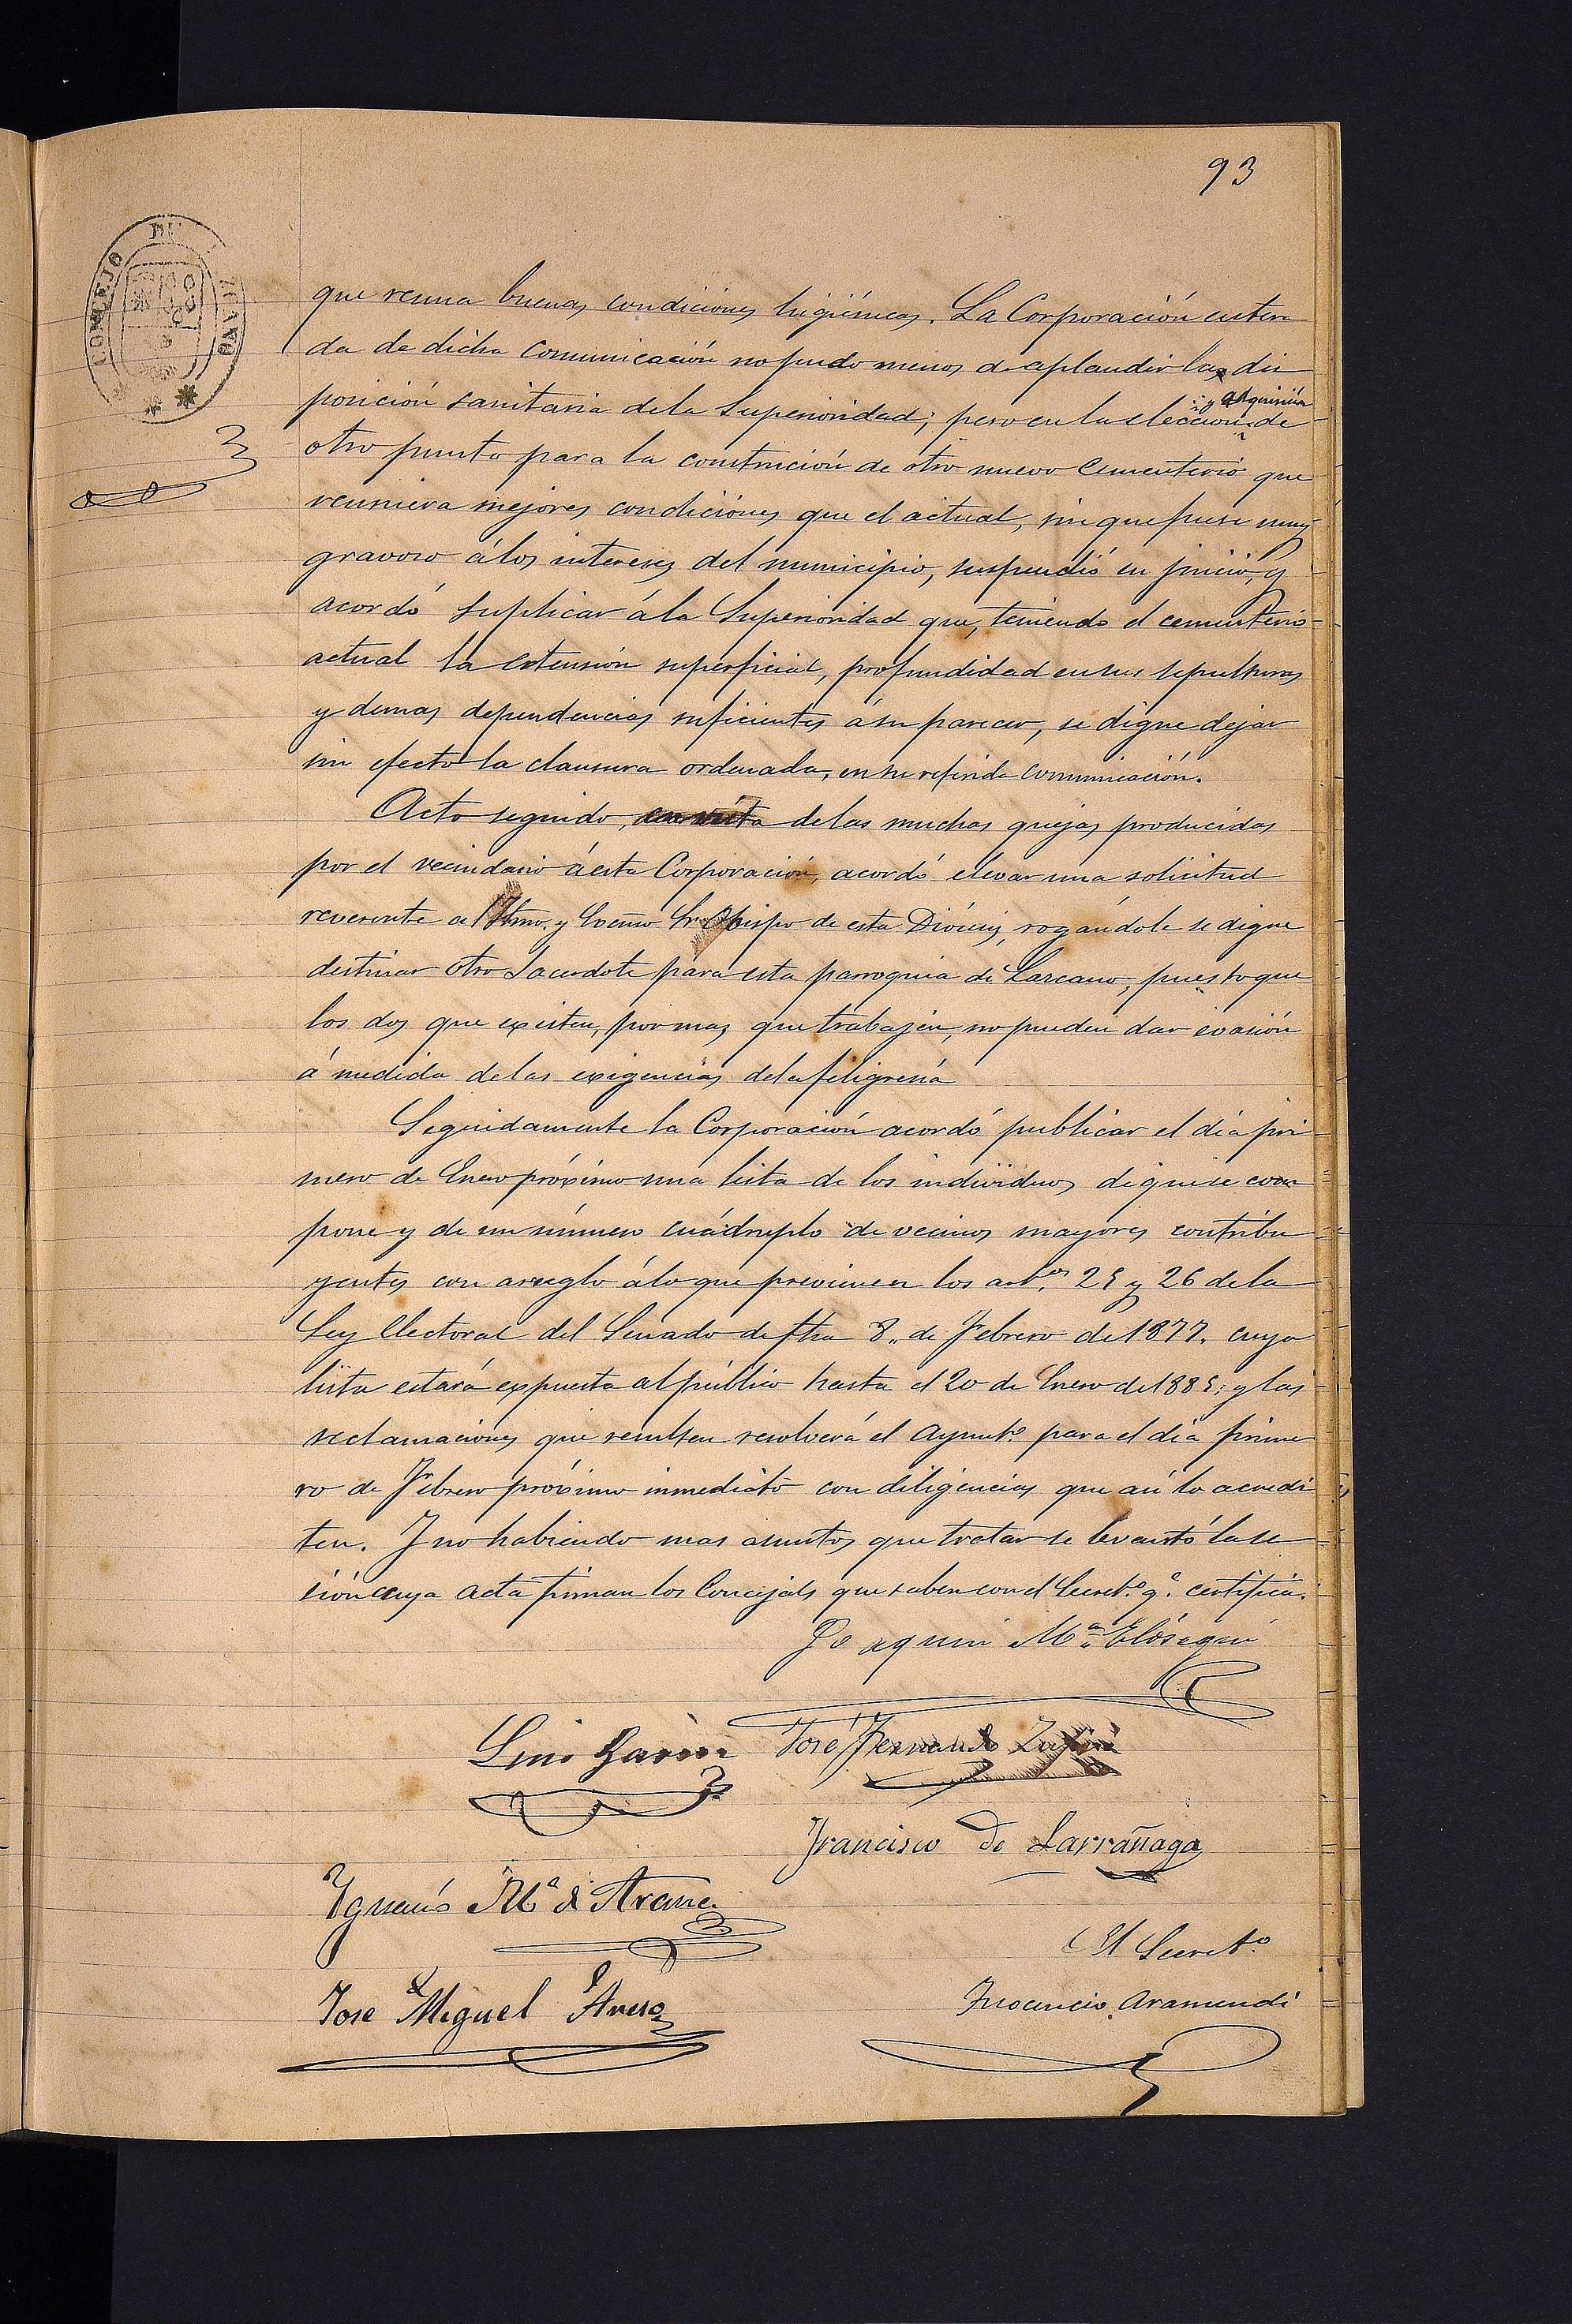 93
CONCEJO DE
que reuna buenas condiciónes higiénicas. La Corporación entera
da de dicha comunicación no pudo menos de aplaudir la dis
posición sanitaria de la Superioridad; pero en la elección y adquisición de
otro punto para la construción de otro nuevo Cementerio que
reuniera mejores condiciónes que el actual, sin que fuese muy
gravoso á los intereses del municipio, suspendió su juicio, y
acordó suplicar á la Superioridad que, teniendo el cementerio
actual la estensión superficial, profundidad en sus sepulturas
y demas dependencias suficientes á su parecer, se digne dejar
sin efecto la clausura ordenada, en su referida comunicación.
Acto seguido, en vista de las muchas quejas producidas
por el vecindario á esta Corporación, acordó elevar una solicitud
reverente al Iltmo. y Excmo Sr. Obispo de esta Diócesis, rogándole se digne
destinar otro Sacerdote para esta parroquia de Lazcano, puesto que
los dos que existen, por mas que trabajen, no pueden dar evasión
á medida de las exigencias de la feligresía
Seguidamente la Corporación acordó publicar el día pri
mero de Enero próximo una lista de los individuos de que se com
pone y de un número cuádruplo de vecinos mayores contribu
yentes con arreglo á lo que previenen los art.os 25 y 26 de la
Ley Electoral del Senado de fha 8,, de Febrero de 1877. cuya
lista estará expuesta al público hasta el 20 de Enero de 1885; y las
reclamaciones que resulten resolverá el Ayunt.º para el día prime
ro de Febrero próximo inmediato con diligencias que asi lo acredi
ten. Y no habiendo mas asuntos que tratar se levantó la se
sión cuya acta firman los Concejales que saben con el Secret.º q.e certifica.
Joaquin Mª Elósegui
Lino Garin José Fernando
Francisco de Larrañaga
Ignacio Mª de Arana
El Secret.º
Jose Miguel
Inocencio Aramendi